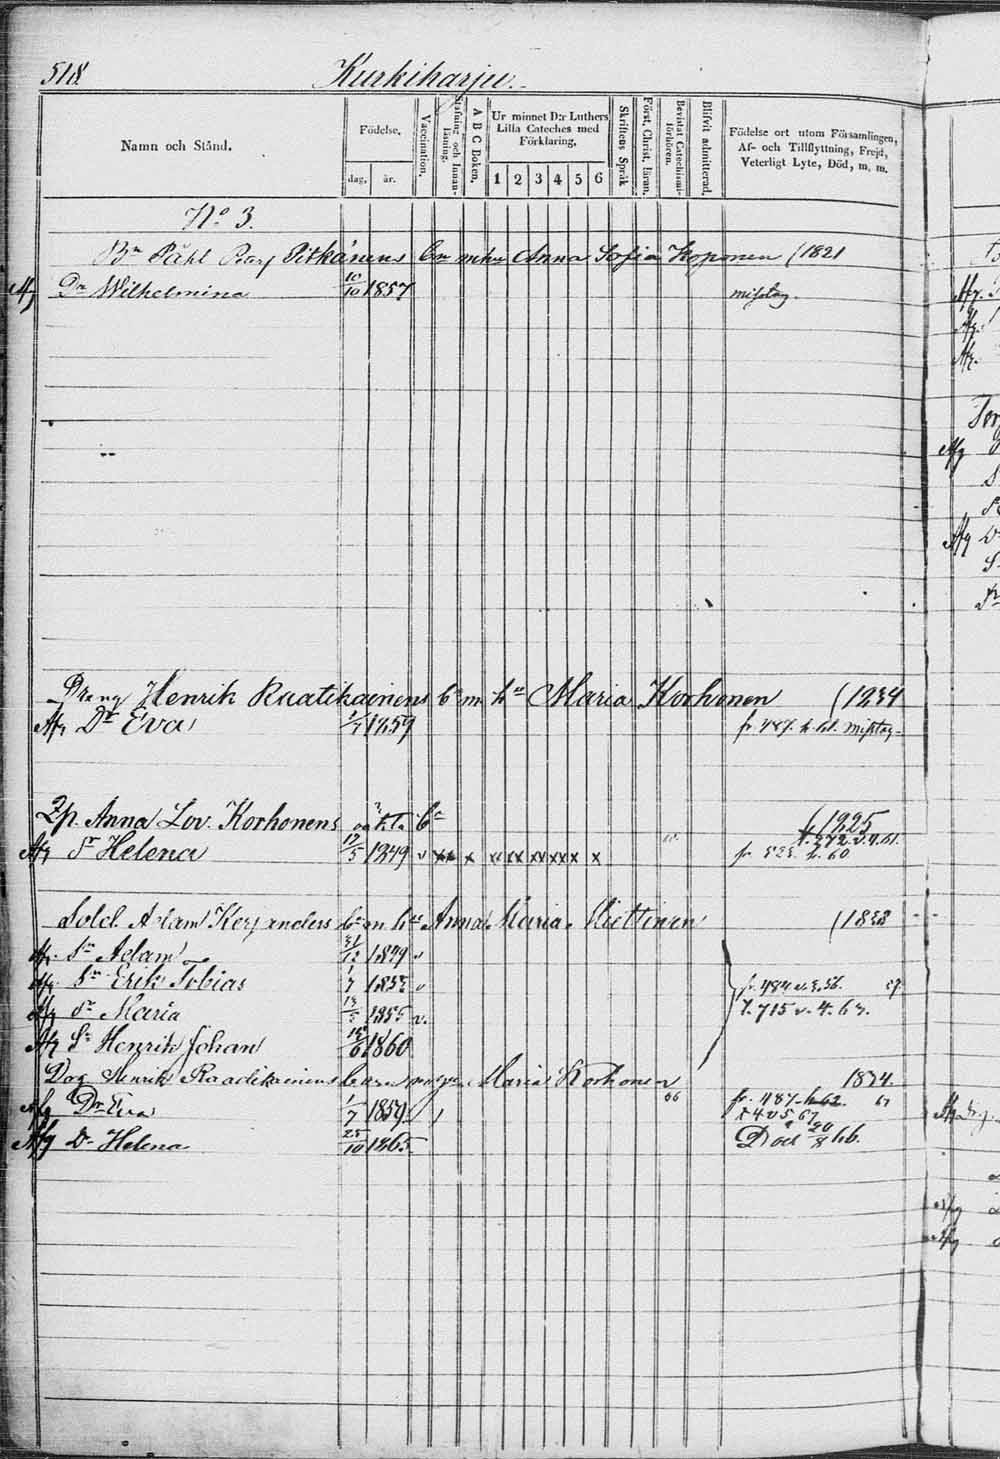 518.
Kurkiharju.
Namn och Stånd.
Födelse,
dag.
år.
Vaccination.
Stafning och Innanläsning.
A B C Boken.
Ur minnet D:r Luthers
Lilla Cateches med
Förklaring,
1 2 3 4 5 6
Skriftens Språk
Först. Christ. läran.
Bevistat Catechismiförhören.
Blifvit admitterad.
Födelse ort utom Församlingen,
Af- och Tillflyttning, Frejd,
Veterligt Lyte, Död, m. m.
No 3.
Bn Påhl Pitkänens bn m hu Anna Sofia Koponen (1821
Dr Wilhelmina 10/10 1857 misstag.
Dräng Henrik Raatikainens bn m hu Maria Korhonen (1834
Dr Eva 1/7 1859 fr. 487. misstag.
Anna Lov. Korhonens bn (1825
Dr Helena 1849 v xx x xx xx xx xx x x
h. 60
Sold. Adam Kerfanders bn m hu Anna Maria (1828
Sn Adam 31/12 1849 v
Sn Erik Tobias 1/7 1852 v
Dr Maria 1855 v.
t. 715 v. 4. 63.
Sn Henrik Johan 1860
Henrik Raatikainens barn Maria Korhonen 1834.
Dr Eva 1/7 1859 66 fr. 487 h 62 67
t 4 v 5 67
Dr Helena 25/10 1865 Död 20/8 66.